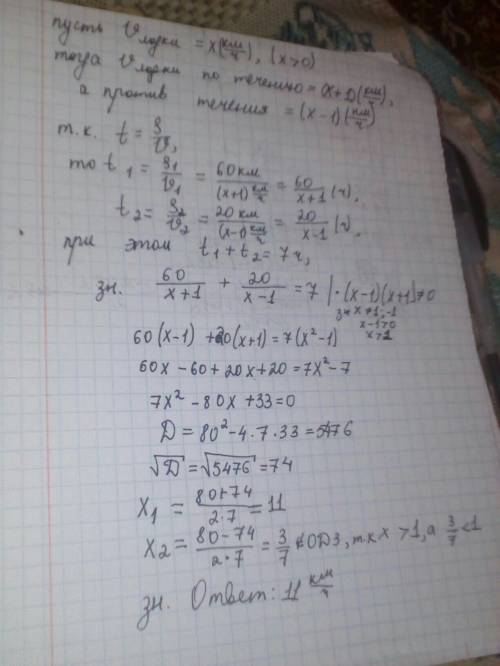 пусть V лодки = x(км/ч), (x>0)
тогда V лодки по течению = (x+1)(км/ч),
а против течения = (x-1)(км/ч)
т.к. t = S/V,
то t₁ = S₁/V₁ = 60км/(x+1)км/ч = 60/x+1 (ч),
t₂ = S₂/V₂ = 20км/(x-1)км/ч = 20/x-1 (ч),
при этом t₁ + t₂ = 7ч,
зн. 60/x+1 + 20/x-1 = 7 |·(x-1)(x+1)≠0
зн x≠1;-1
x-1>0
x>1
60(x-1) + 20(x+1) = 7(x²-1)
60x-60+20x+20=7x²-7
7x²-80x+33=0
D = 80²-4·7·33=5476
√D = √5476 = 74
x₁ = 80+74/2·7 = 11
x₂ = 80-74/2·7 = 3/7 ∉ОДЗ, т.к x>1, а 3/7<1
зн. Ответ: 11 км/ч